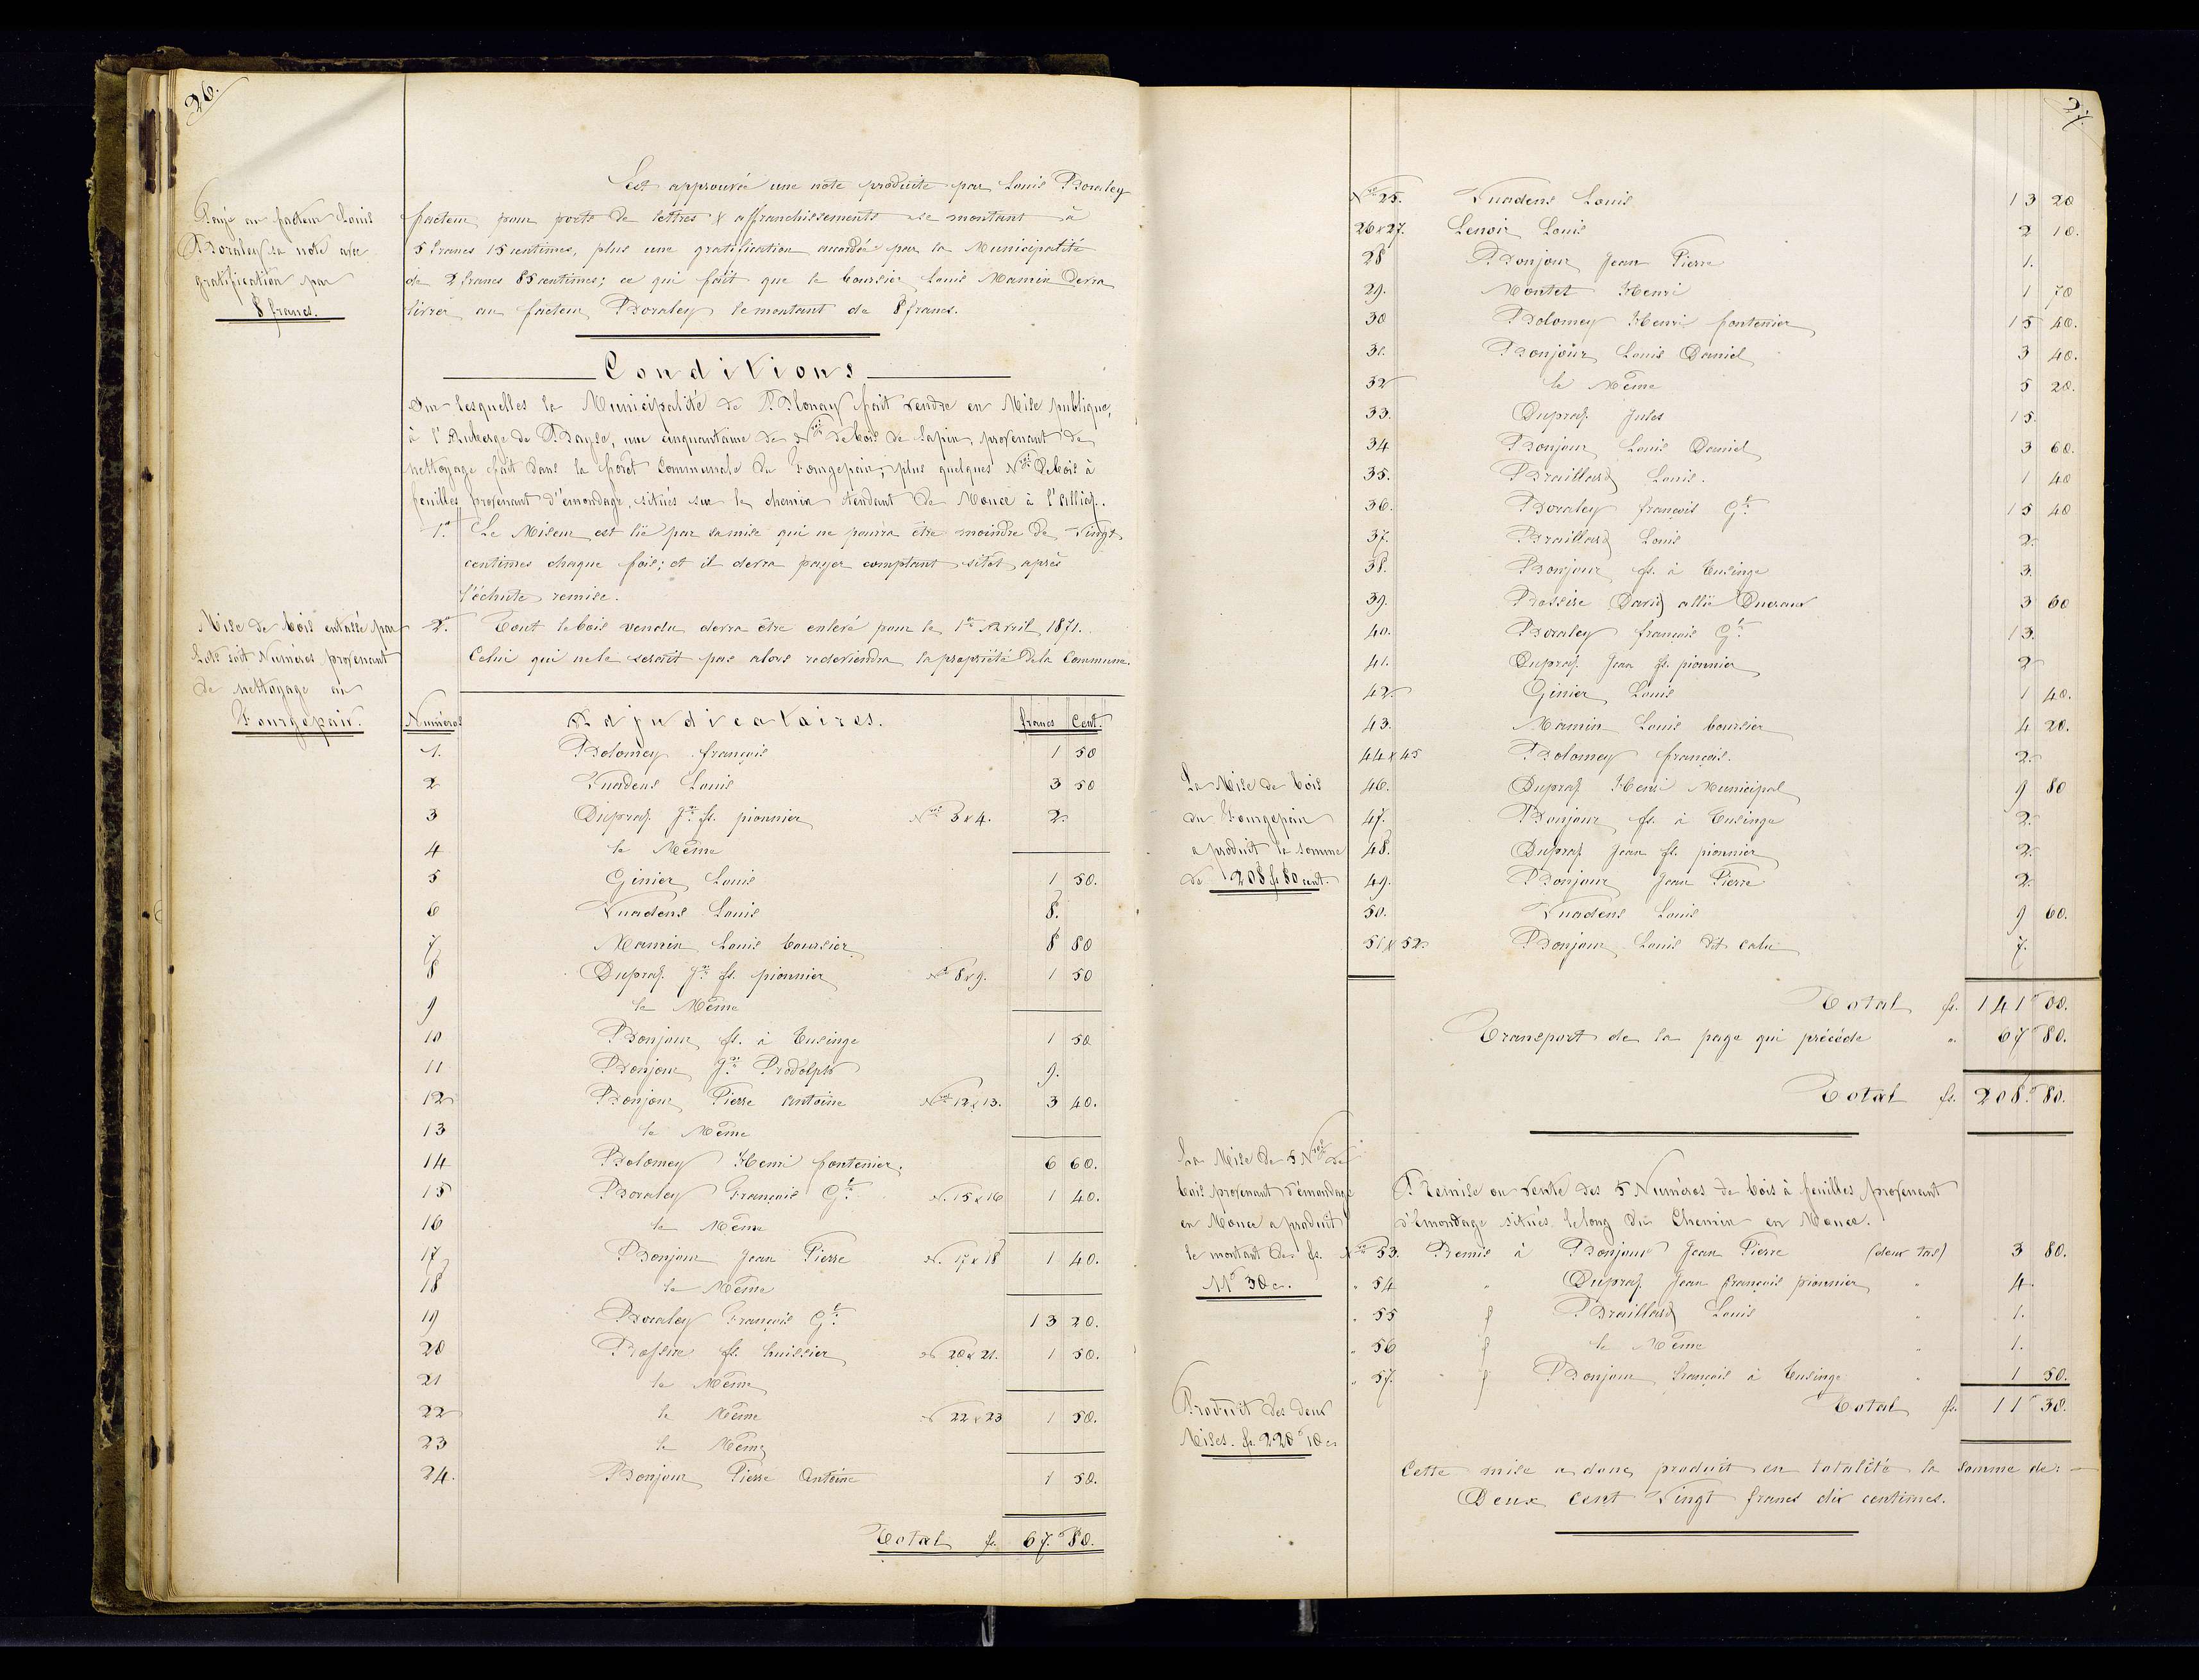 26.
Est approuvée une note produite par Louis Boraley
facteur, pour ports de lettres & affranchissements se montant à
5 francs 15 centimes, plus une gratification accordée par la Municipalité
de 2 francs 85 centimes; ce qui fait que le boursier Louis Mamin devra
livrer au facteur Boraley le montant de 8 francs.
Payé au facteur Louis
Boraley sa note avec
gratification par
8 francs.
Conditions
Sur lesquelles la Municipalité de Blonay fait vendre en Mise publique,
à l'Auberge de Bayse, une cinquantaine de Nos de bois de sapin, provenant de
nettoyage fait dans la forêt Communale du Fourgepain; plus quelques Nos de bois à
feuilles provenant d'émondage, situés sur le chemin tendant de Mouce à l'Alliaz.
1o Le Miseur est lié par sa mise qui ne pourra être moindre de vingt
centimes chaque fois; et il devra payer comptant sitôt après
l'échute remise.
2o Tout le bois vendu devra être enlevé pour le 1er Avril 1871.
Celui qui ne le serait pas alors redeviendra la propriété de la Commune.
Mise de bois entassé par
Lots soit Numéros provenant
de nettoyage en
Fourgepain.
Numéros Adjudicataires. francs Cent.
1. Bolomey françois 1 50
2 Vuadens Louis 3 50
3 Dupraz Jn fs. pionnier Nos 3 & 4. 2.
4 le Même
5 Ginier Louis 1 50.
6 Vuadens Louis 8.
7 Mamin Louis boursier 8 80
8 Dupraz Jn fs. pionnier Nos 8 & 9. 1 50
9 le Même
10 Bonjour fs. à Tusinge 1 50
11 Bonjour Jn Rodolph 9.
12 Bonjour Pierre Antoine Nos 12 & 13. 3 40.
13 le Même
14 Bolomey Henri fontenier. 6 60.
15 Boraley François Gl. N. 15 & 16 1 40.
16 le Même
17 Bonjour Jean Pierre N. 17 & 18 1 40.
18 le Même
19 Boraley François Gl. 13 20.
20 Bossire fs. huissier N 20 & 21. 1 50.
21 le Même
22 le Même N 22 & 23 1 50.
23 le Même
24. Bonjour Pierre Antoine 1 50.
Total fs. 67. 80.
27.
Nos 25. Vuadens Louis 13 20
26 & 27. Lenoir Louis 2 10.
28 Bonjour Jean Pierre 1.
29. Montet Henri 1 70
30 Bolomey Henri fontenier 15 40.
31. Bonjour Louis Daniel 3 40.
32 le Même 5 20.
33. Dupraz Jules 15.
34 Bonjour Louis Daniel 3 60.
35. Braillard Louis. 1 40
36. Boraley françois Gl. 15 40
37. Braillard Louis 2.
38. Bonjour fs. à Tusinge 3.
39. Bossire David allié Ducraux 3 60
40. Boraley françois Gl. 13.
41. Dupraz Jean fs. pionnier 2
42. Ginier Louis 1 40.
43. Mamin Louis boursier 4 20.
44 & 45 Bolomey françois. 2.
46. Dupraz Henri Municipal 9 80
47. Bonjour fs. à Tusinge 2.
48. Dupraz Jean fs. pionnier 2.
49. Bonjour Jean Pierre 2.
50. Vuadens Louis 9 60.
51 & 52. Bonjour Louis dit 7.
La Mise de bois
du Fourgepain
a produit la somme
de 208 fs 80 cent.
Total fs. 141 00.
Transport de la page qui précède " 67 80.
Total fs. 208. 80.
La Mise de 5 Nos de
bois provenant d'émondage
en Mouce a produit
le montant de fs.
11 30 c.
Remise ou vente des 5 Numéros de bois à feuilles provenant
d'Emondage situés le long du Chemin en Mouce.
Nos 53. Remis à Bonjour Jean Pierre (deux tas) 3 80.
" 54 " Dupraz Jean françois pionnier " 4.
" 55 Braillard Louis " 1.
" 56 le Même " 1.
" 57. " Bonjour François à Tusinge " 1 50.
Total fs. 11 30.
Produit des deux
Mises. fs. 220 10 c.
Cette mise a donc produit en totalité la somme de: —
Deux cent Vingt francs dix centimes.